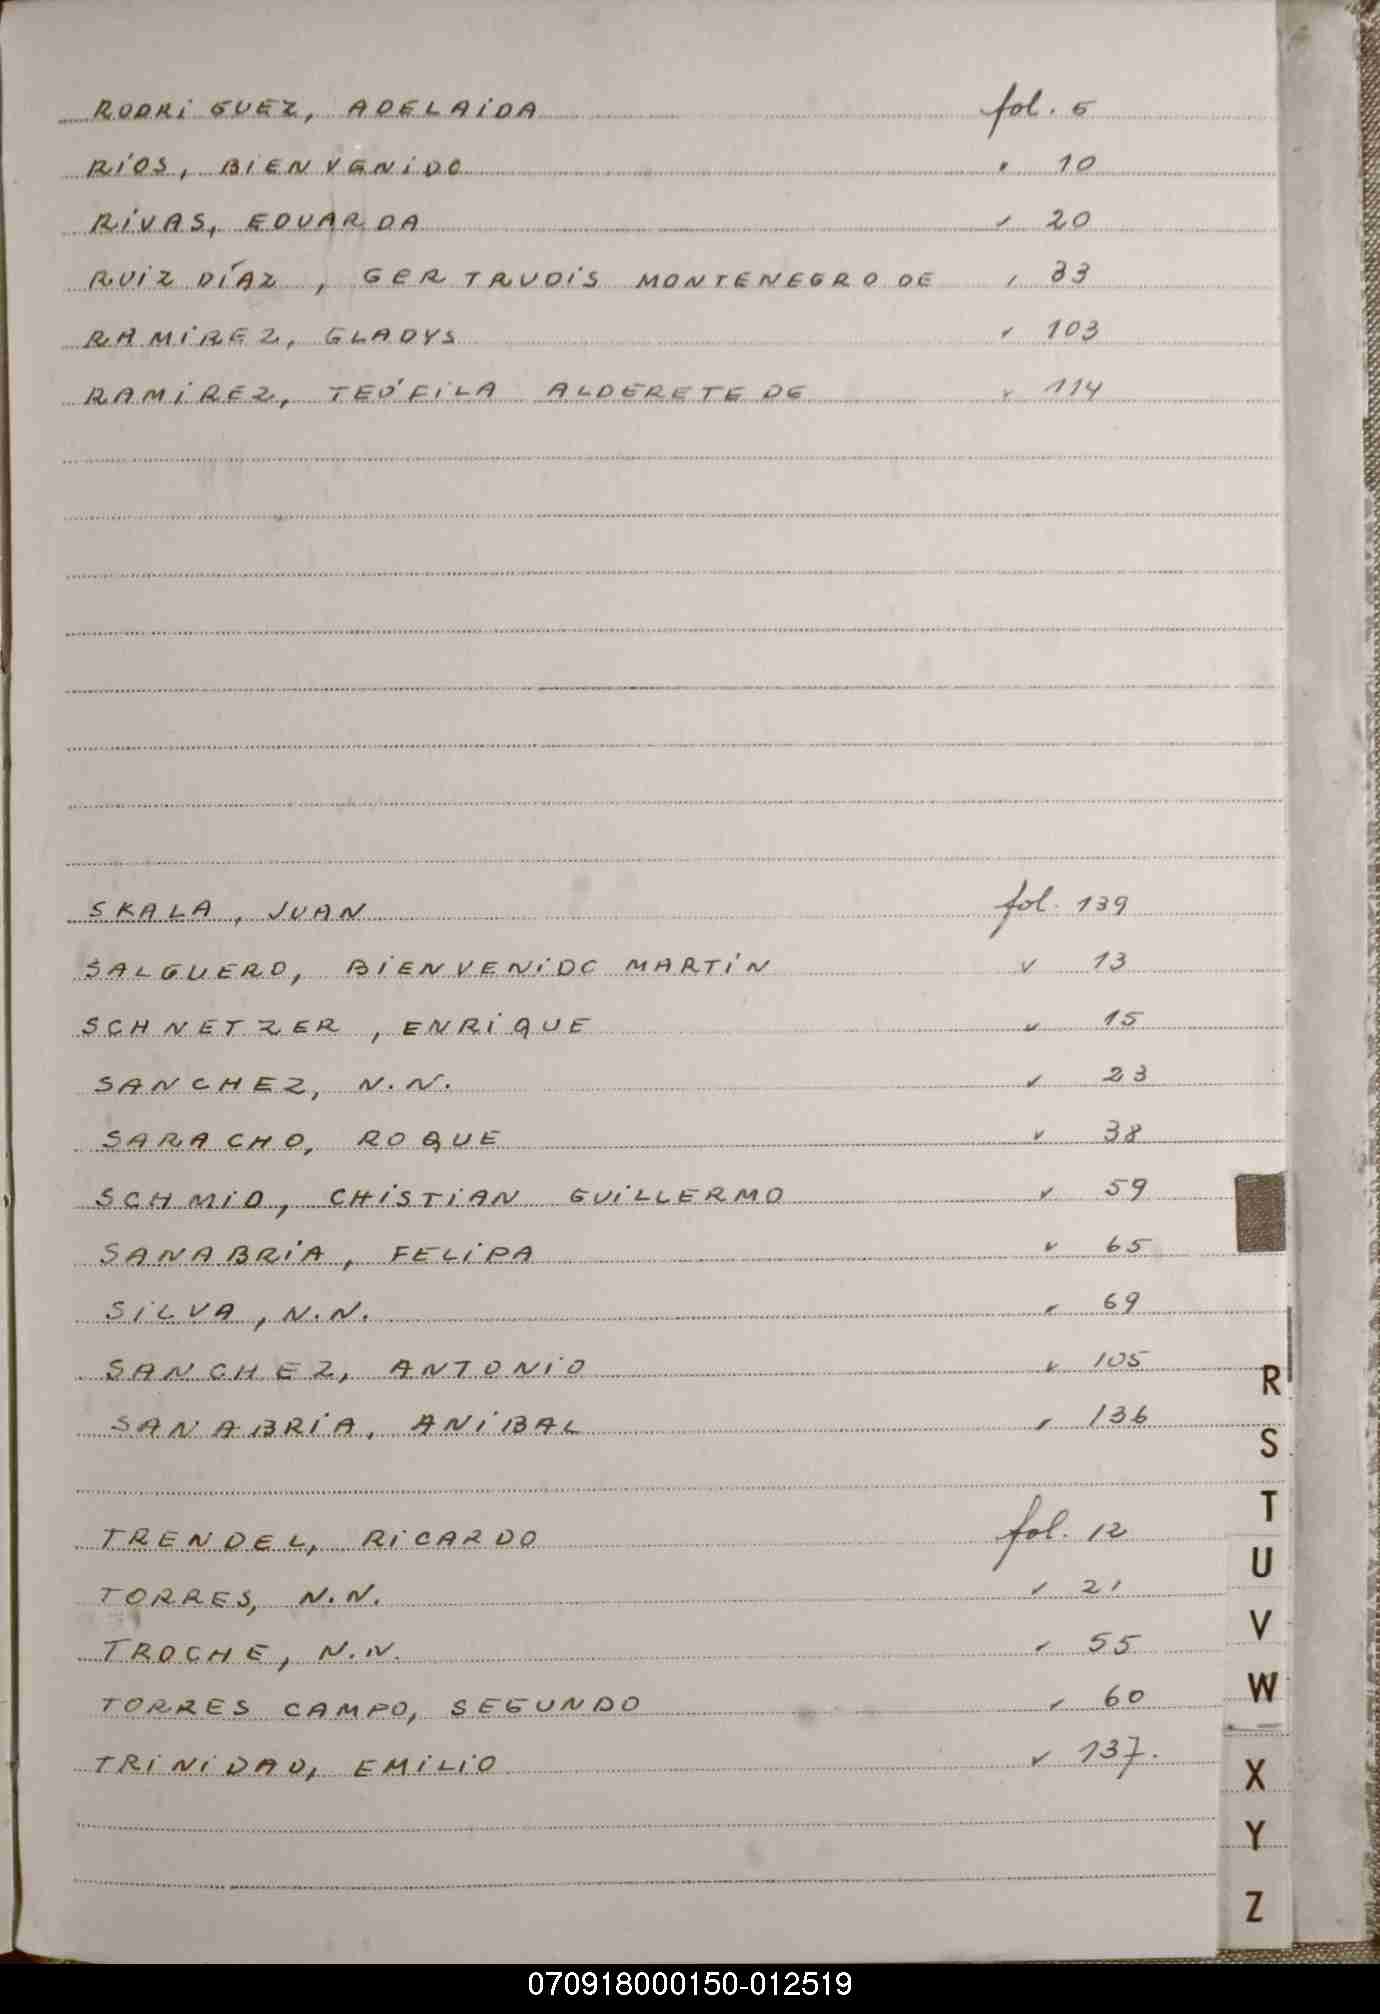 RODRIGUEZ, ADELAIDA fol. 6
RÍOS, BIENVENIDO " 10
RIVAS, EDUARDA " 20
RUIZ DÍAZ, GERTRUDIS MONTENEGRO DE " 33
RAMIREZ, GLADYS " 103
RAMIREZ, TEÓFILA ALDERETE DE " 114
SKALA, JUAN fol. 139
SALGUERO, BIENVENIDO MARTÍN " 13
SCHNETZER, ENRIQUE " 15
SANCHEZ, N.N. " 23
SARACHO, ROQUE " 38
SCHMID, CHISTIAN GUILLERMO " 59
SANABRIA, FELIPA " 65
SILVA, N.N. " 69
SANCHEZ, ANTONIO " 105
SANABRIA, ANIBAL " 136
TRENDEL, RICARDO fol. 12
TORRES, N.N. " 21
TROCHE, N.N. " 55
TORRES CAMPO, SEGUNDO " 60
TRINIDAD, EMILIO " 137.
R
S
T
U
V
W
X
Y
Z
070918000150-012519